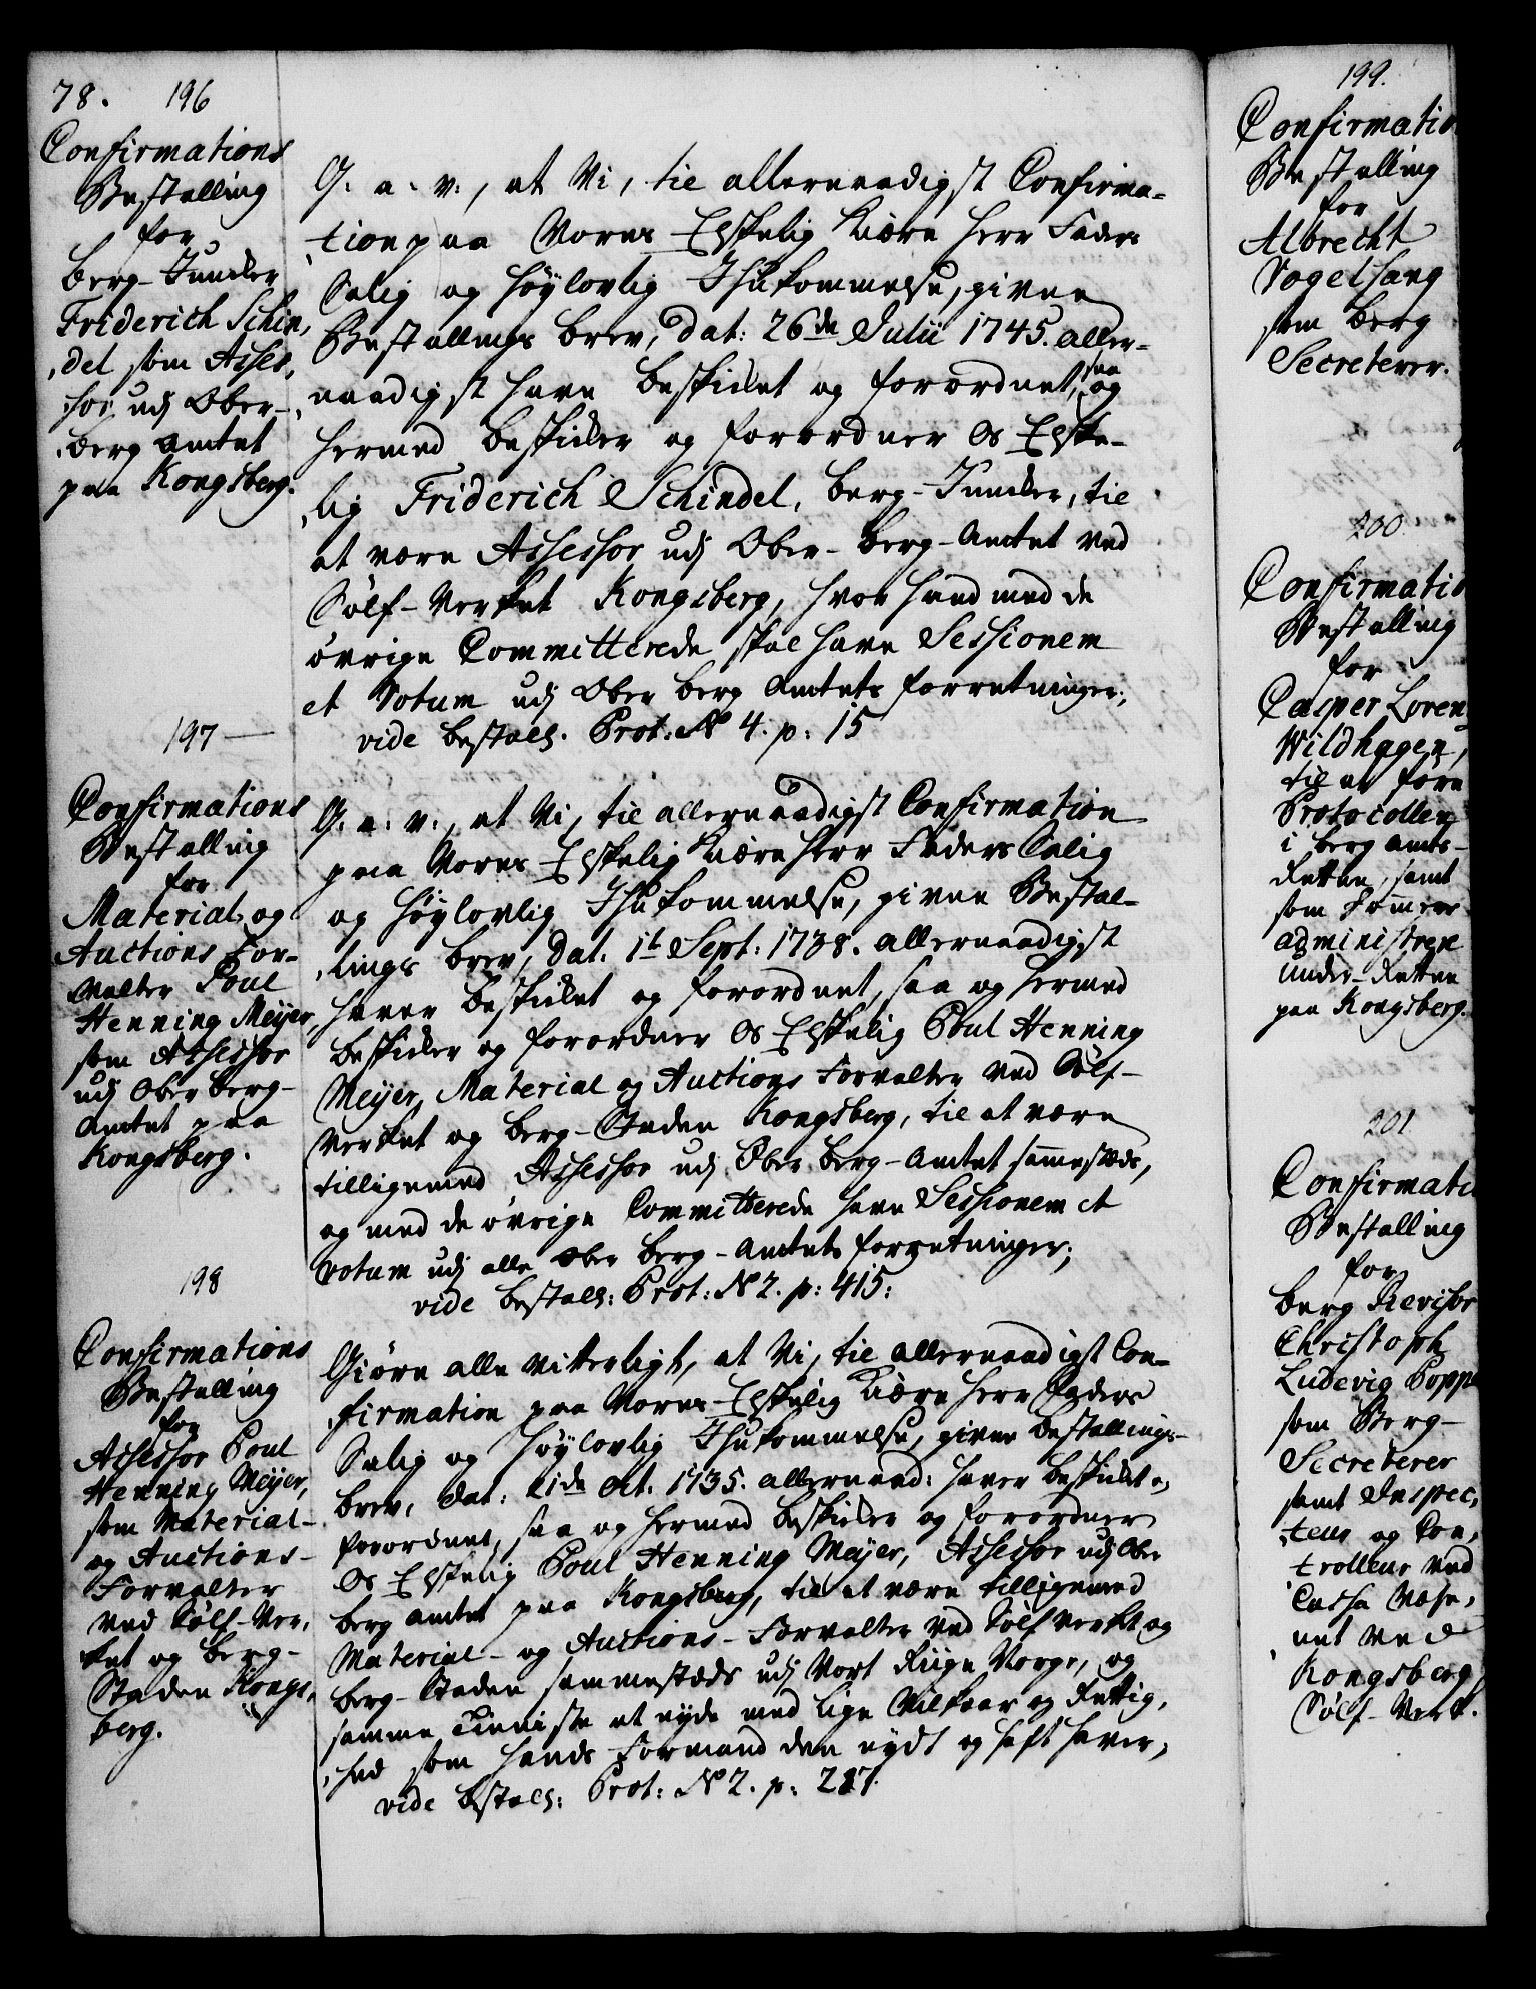 78. 196
Confirmations
Bestalling
for
Berg-Juncker
Friderich Schin,
,del som Asses,
,sor udj Ober-
,berg Amtet
paa Kongsberg.
G: a: v:, at Vi, til allernaadigst Confirma-
,tion paa Vores Elskelig Kiære Herr Faders
Salig og Høylovlig Ihukommelse, given
Bestallings Brev, dat: 26de Julii 1745. aller-
naadigst have beskicket og forordnet, saa og
hermed beskicker og forordner Os Elske-
,lig Friderich Schindel, Berg-Juncker, til
at være Assessor udj Ober-Berg-Amtet ved
Sølf-Verket Kongsberg, hvor hand med de
øvrige Committerede skal have Sessionem
et Votum udj Ober Berg Amtets forretninger;
vide Bestall. Prot: No 4. p: 15
197
Confirmations
Bestalling
for
Material og
Auctions For-
valter Poul
Henning Meyer,
som Assessor
udj Ober Berg-
Amtet paa
Kongsberg.
G: a: v:, at Vi, til allernaadigst Confirmation
paa Vores Elskelig Kiære Herr Faders Salig
og Høylovlig Ihukommelse, given Bestal-
,lings Brev, dat. 1t Sept: 1738. allernaadigst
haver beskicket og forordnet, saa og hermed
beskicker og forordner Os Elskelig Poul Henning
Meyer, Material og Auctions Forvalter ved Sølf-
verket og Berg-Staden Kongsberg, til at være
tilligemed Assessor udj Ober Berg-Amtet sammestæds,
og med de øvrige Committerede have Sessionem et
votum udj alle Ober Berg-Amtets forretninger;
vide Bestall: Prot: No 2. p: 415:
198
Confirmations
Bestalling
for
Assessor Poul
Henning Meyer,
som Material-
og Auctions-
Forvalter
ved Sølf-Ver,
ket og Berg-
Staden Kongs,
berg.
Giøre alle vitterligt, at Vi, til allernaadigst Con-
,firmation paa Vores Elskelig Kiære Herr Faders
Salig og Høylovlig Ihukommelse, given Bestallings-
Brev, dat: 21de Oct. 1735. allernaad: haver beskicket og
forordnet, saa og hermed beskicker og forordner
Os Elskelig Poul Henning Meyer, Assessor udj Ober
berg Amtet paa Kongsberg, til at være tilligemed
Material- og Auctions-Forvalter ved Sølfverket og
Berg-Staden sammestæds udj Vort Riige Norge, og
samme Tieniste at nyde med lige Vilkaar og Rettig,
,hed som hands Formand den nydt og haft haver;
vide Bestall: Prot: No 2. p: 217.
199.
Confirmatio
Bestalling
for
Albrecht
Vogelsang
som Berg
Secreterer.
200
Confirmatio
Bestalling
for
Casper Loren
Wildhagen,
til at føre
Protocollen
i Berg Amts-
Retten, samt
som
administrere
Under-Retten
paa Kongsberg.
201
Confirmati
Bestalling
for
Berg Revisor
Christoph
Ludevig Poppe
som Berg-
Secreterer
samt Inspec,
,teur og Con,
,trolleur ved
Cassa Væse,
net ved
Kongsberg
Sølf-Verk.